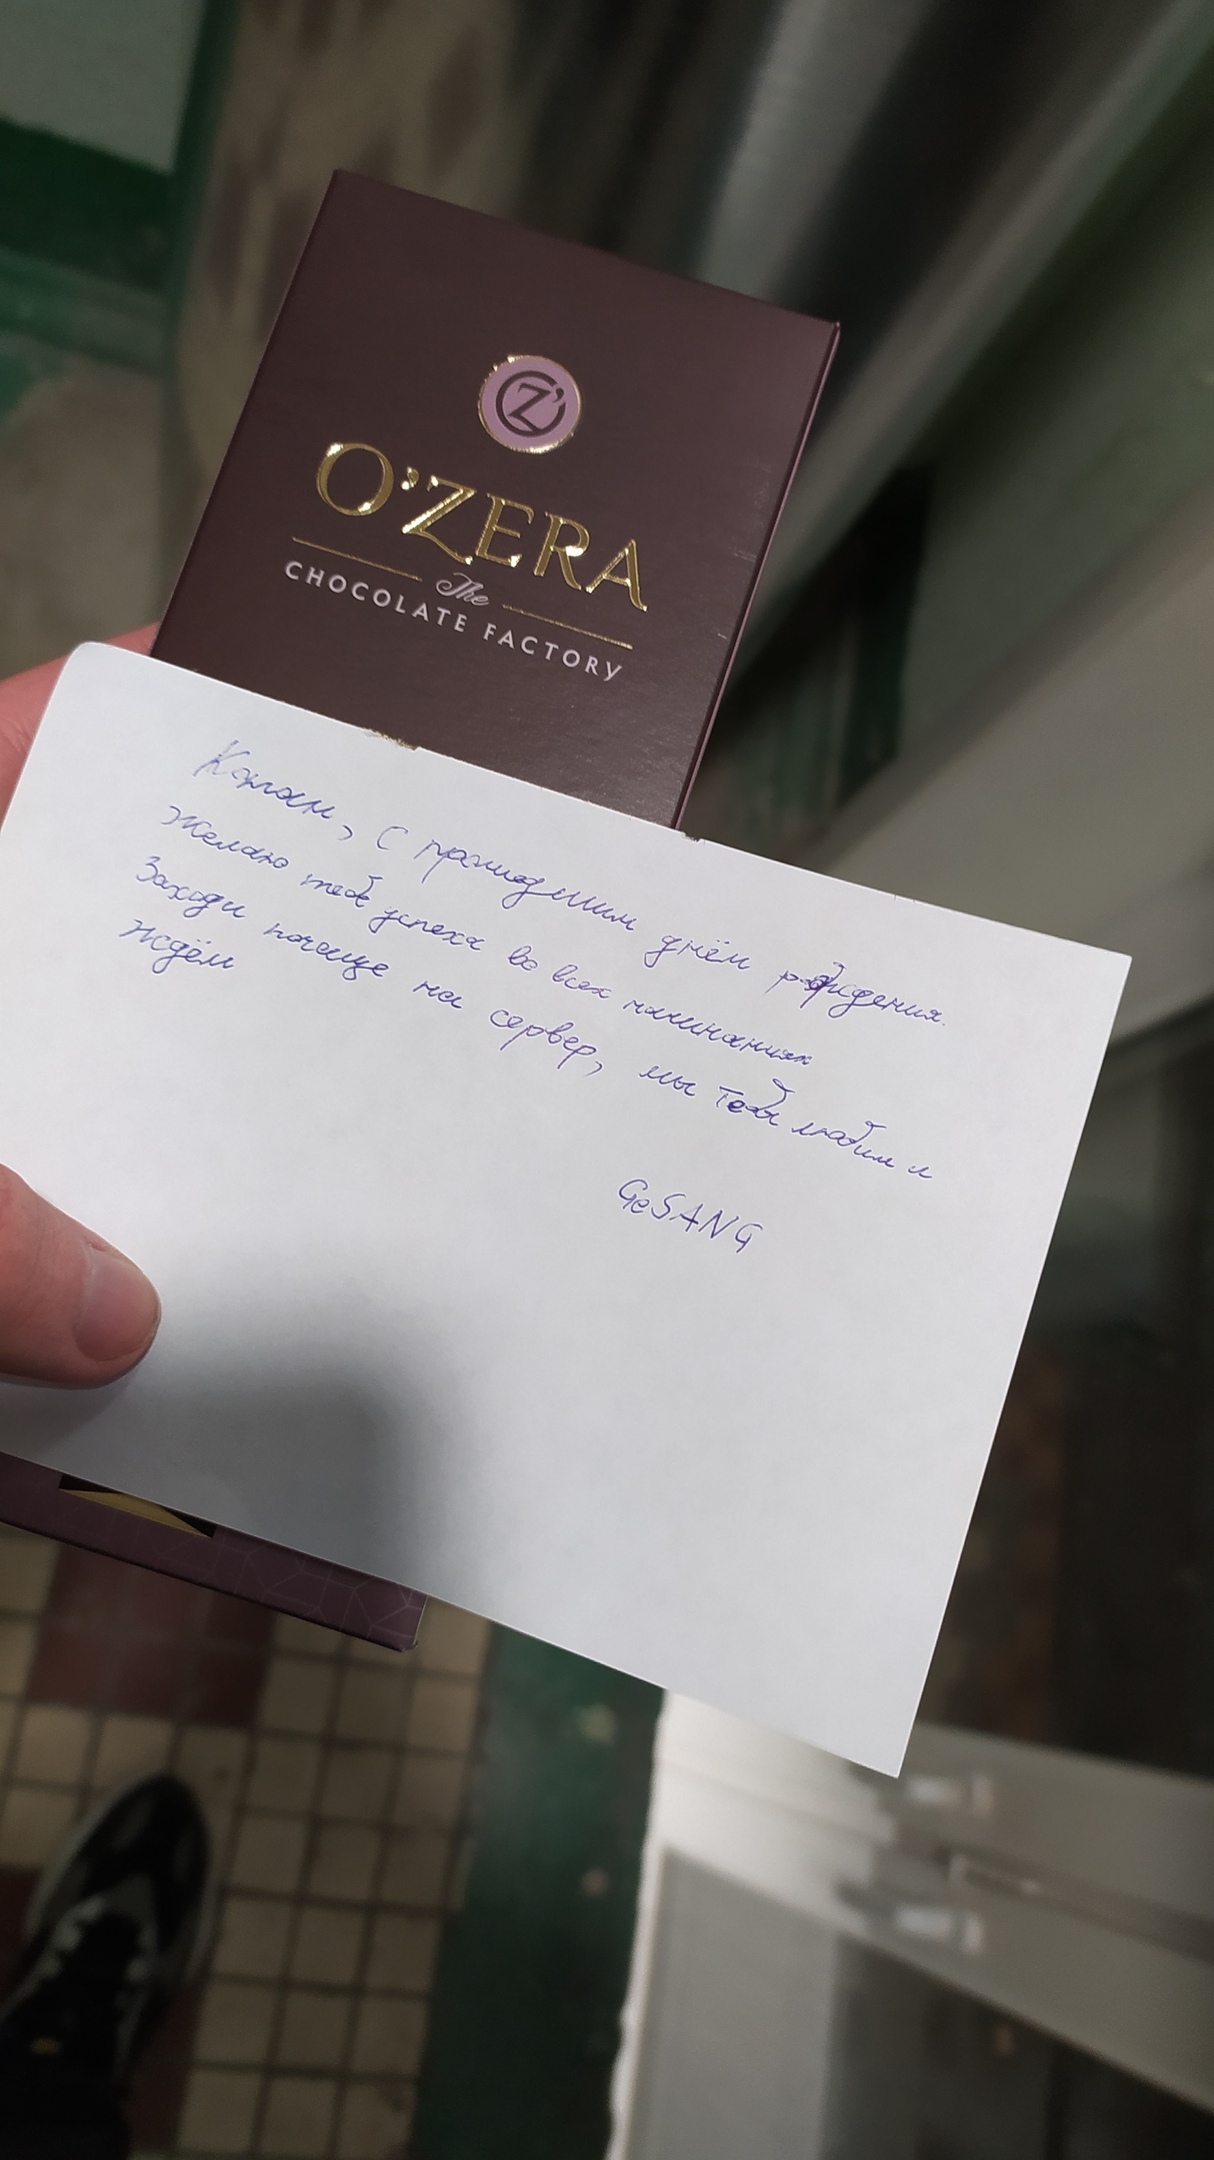 OZ'
O'ZERA
The
CHOCOLATE FACTORY
с прошедшим днём рождения.
Желаю тебе успеха во всех начинаниях
Заходи почаще на сервер, мы тебя любим и
ждём
GeSANG